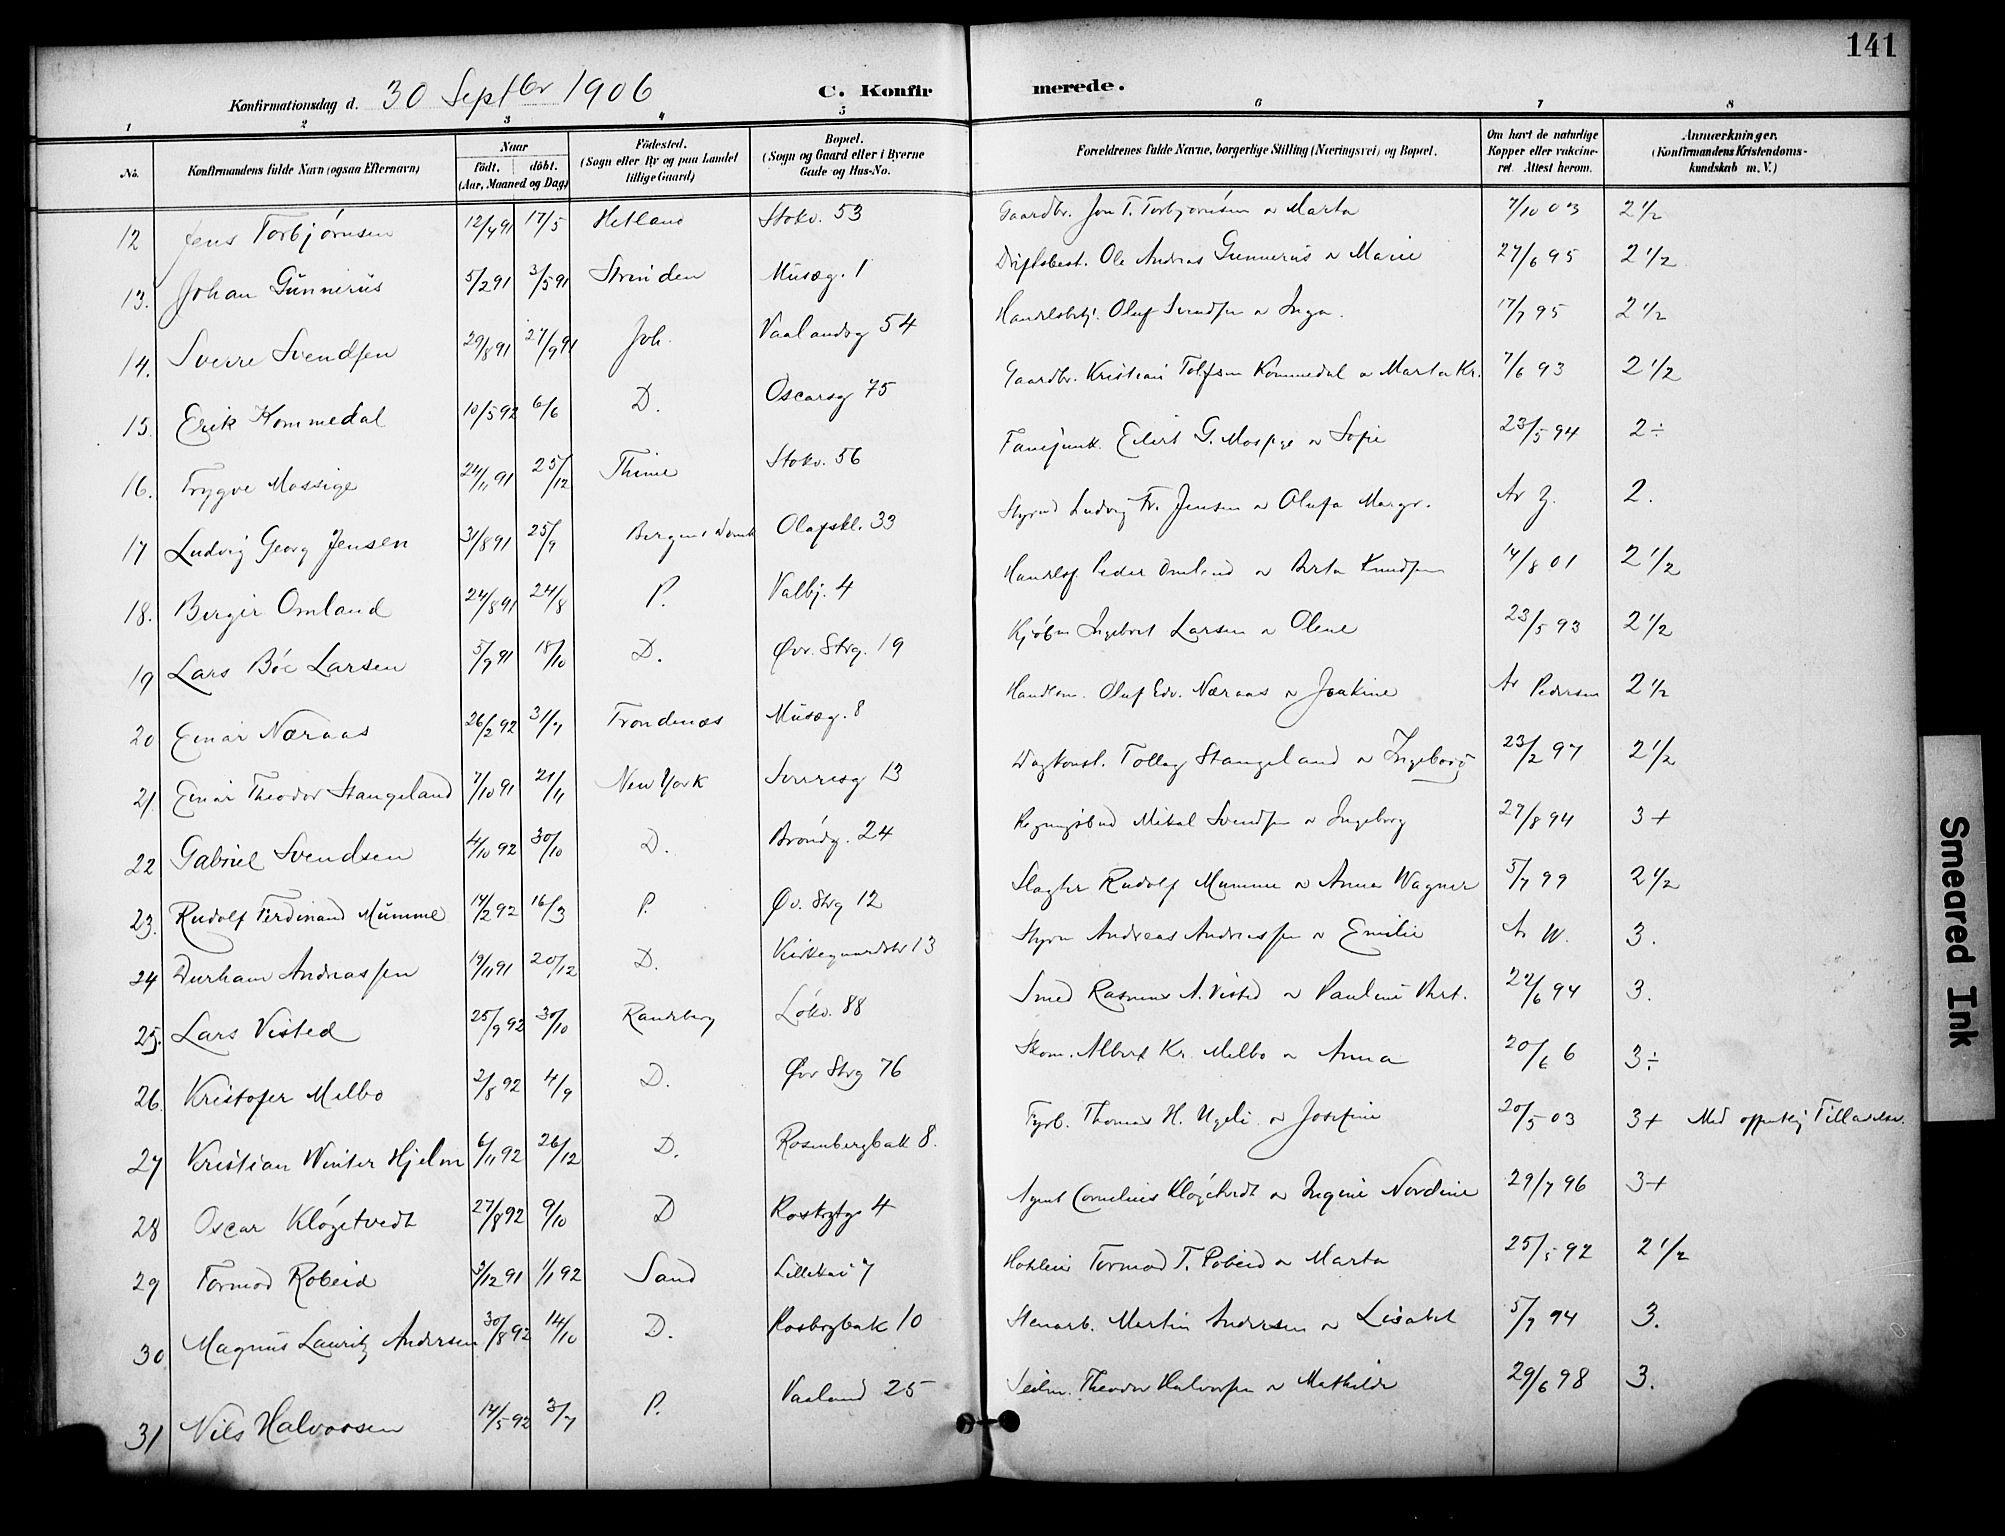 141
Konfirmationsdag d. 30 Septbr 1906 C. Konfirmerede.
1 2 3 4 5 6 7 8
No. Konfirmandens fulde Navn (ogsaa Efternavn) Naar födt. döbt. (Aar, Maaned og Dag) Födested. (Sogn eller By og paa Landet tillige Gaard) Bopæl. (Sogn og Gaard eller i Byerne Gade og Hus-No. Forældrenes fulde Navne, borgerlige Stilling (Næringsvei) og Bopæl. Om havt de naturlige Kopper eller vakcineret. Attest herom. Anmærkninger. (Konfirmandens Kristendomskundskab m. V.)
12 Jens Torbjørnsen 12/4 91 17/5 Hetland Stokv. 53 Gaardbr. Jon T. Torbjørnsen o Marta 7/10 03 2 1/2
13. Johan Gunnerus 5/2 91 3/5 91 Strinden Musæg. 1 Driftsbest. Ole Andreas Gunnerus o Marie 27/6 95 2 1/2
14. Sverre Svendsen 29/8 91 27/9 91 Joh. Vaalandsg 54 Handelsbetj. Oluf Svendsen o Inga. 17/7 95 2 1/2
15. Erik Kommedal 10/5 92 6/6 D. Oscarsg 75 Gaardbr. Kristian Tolfsen Kommedal o Marta Kr. 7/6 93 2 1/2
16. Trygve Mossige 24/11 91 25/12 Thime Stokv. 56 Fanejunk. Eilert G. Mossige o Sofie 23/5 94 2 ÷
17 Ludvig Georg Jensen 31/8 91 25/9 Bergens Olafskl. 33 Styrmd Ludvig Fr. Jensen o Olufa Margr. Ar 2.
18. Berger Omland 24/8 91 24/8 P. Valbj. 4 Handelsf. Peder Omland o Berta Knudsen 14/8 01 2 1/2
19 Lars Böe Larsen 5/9 91 18/10 D. Øvr. Strg. 19 Kjöbm Ingebret Larsen o Olene 23/5 93 2 1/2
20 Einar Næraas 26/2 92 31/7 Trondenæs Musæg. 8 Handlsm. Oluf Edv. Næraas o Joakine Ar Pedersen 2 1/2
21 Einar Theodor Stangeland 7/10 91 21/11 New York Sverresg 13 Tollag Stangeland o Ingeborg 23/2 97 2 1/2
22 Gabriel Svendsen 4/10 92 30/10 D. Bröndg. 24 Regningsbud Mikal Svendsen o Ingeborg 27/8 94 3 +
23. Rudolf Ferdinand Mumme 14/2 92 16/3 P. Øv. Strg 12 Slagter Rudolf Mumme o Anna Wagner 5/7 99 2 1/2
24 Durham Andreassen 19/11 91 20/12 D. Kirkegaardsbr 13 Styrm Andreas Andreassen o Emilie Ar W. 3.
25. Lars Visted 25/9 92 30/10 Randeberg Løkv. 88 Smed Rasmus A. Visted o Pauline 22/6 94 3.
26. Kristofer Melbo 2/8 92 4/9 D. Øvr Strg 76 Skom. Albert Kr. Melbo o Anna 20/6 6 3 ÷
27 Kristian Winter Hjelm 6/11 92 26/12 D. Rosenbergbak 8. Fyrb. Thomas H. o Josefine 20/5 03 3 + Med Tilladelse.
28 Oscar Kløgetvedt 27/8 92 9/10 D 4 Agent Cornelius Kløgetvedt o Ingine Nordine 29/7 96 3 +
29 Tormod Røbeid 3/12 91 1/1 92 Sand Lillekai 7 Tormod T. Røbeid o Marta 25/5 92 2 1/2
30 Magnus Lauritz Andersen 30/8 92 14/10 D. Rosbrgbak 10 Stenarb. Martin Andersen o Lisabet 5/7 94 3.
31 Nils Halvorsen 14/5 92 3/7 P. Vaaland 25 Seilm. Theodor Halvorsen o Mathilde 29/6 98 3.
Smeared Ink